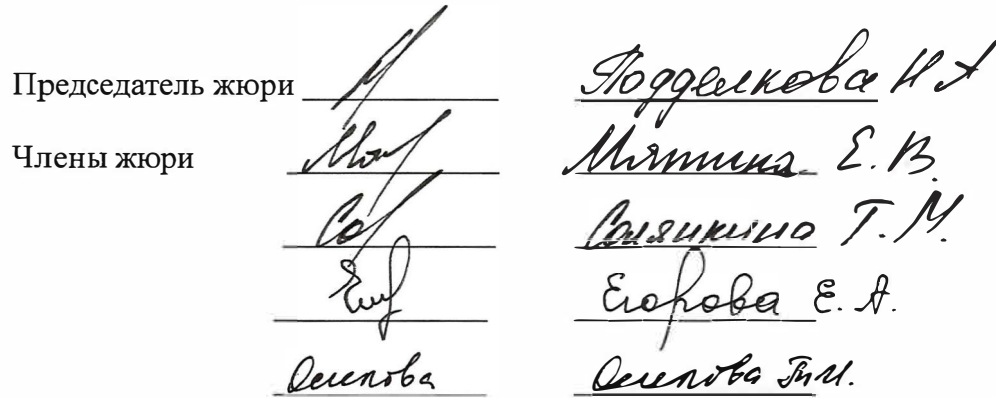 Председатель жюри Подделкова Н А
Члены жюри Мятина Е.В.
Солянкина Т.М.
Егорова Е.А.
Осипова Осипова Т.И.